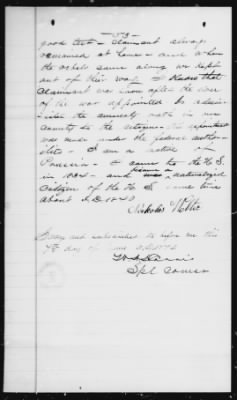 good deal - Claimant always
remained at home - and when
the rebels came along we kept
out of their way. I know that
Claimant was soon after the close
of the war appointed to admin-
ister the amnesty oath in our
County to the citizens - this appointment
was made under the federal author-
ities - I am a native of
Prussia - I came to the U.S.
in 1834 - and became a naturalized
Citizen of the U.S. some time
about A.D. 1840
Nicholas
Sworn and subscribed to before me this
day of
Spl Comsr